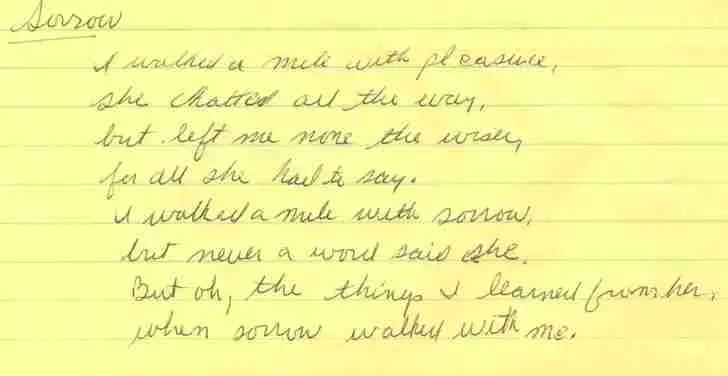 Sorrow
I walked a mile with pleasure,
she chatted all the way,
but left me none the wiser,
for all she had to say.
I walked a mile with sorrow,
but never a word said she.
But oh, the things I learned from her,
when sorrow walked with me.